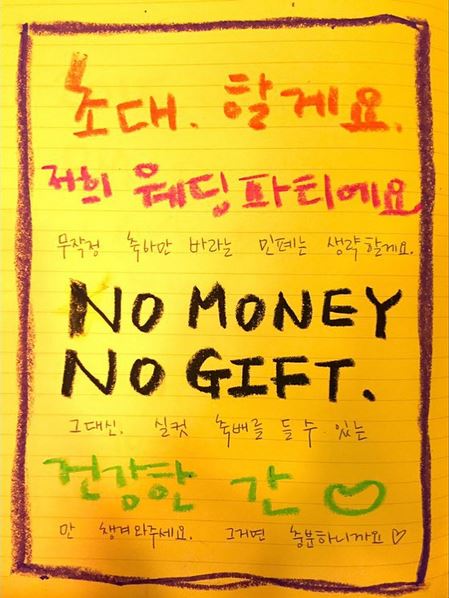 초대. 할게요.
저희 웨딩파티에요
무작정 축하만 바라는 민폐는 생략할게요.
NO MONEY
NO GIFT.
그대신. 실컷 축배를 들 수 있는
건강한 간
만 챙겨와주세요. 그거면 충분하니까요♡